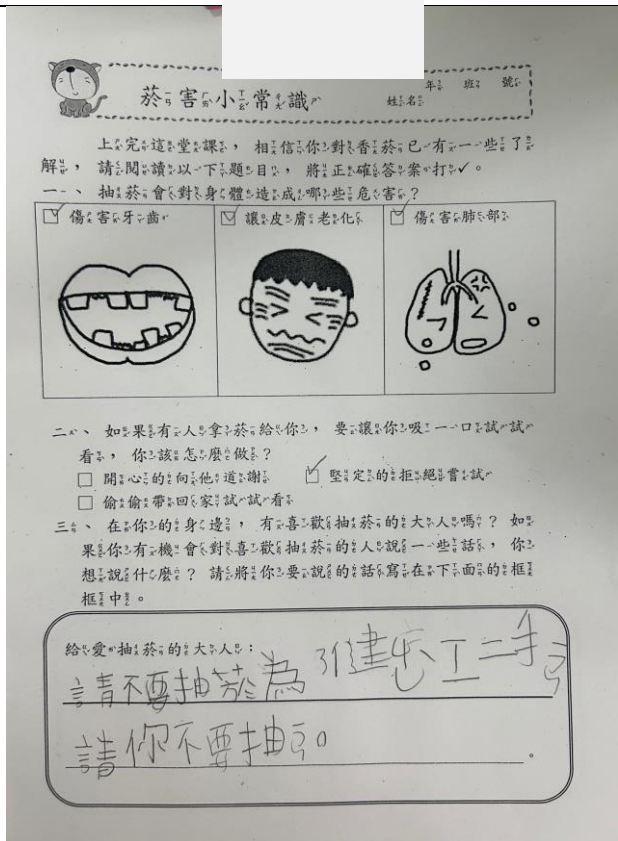 菸害小常識
年 班 號
姓名
上完這堂課,相信你對香菸已有一些了
解,請閱讀以下題目,將正確答案打✓。
一、抽菸會對身體造成哪些危害?
傷害牙齒 讓皮膚老化 傷害肺部
二、如果有人拿菸給你,要讓你吸一口試試
看,你該怎麼做?
開心的向他道謝 堅定的拒絕嘗試
偷偷帶回家試試看
三、在你的身邊,有喜歡抽菸的大人嗎?如
果你有機會對喜歡抽菸的人說一些話,你
想說什麼?請將你要說的話寫在下面的框
框中。
給愛抽菸的大人:
請不要抽菸為 健 二手
請你不要抽
。